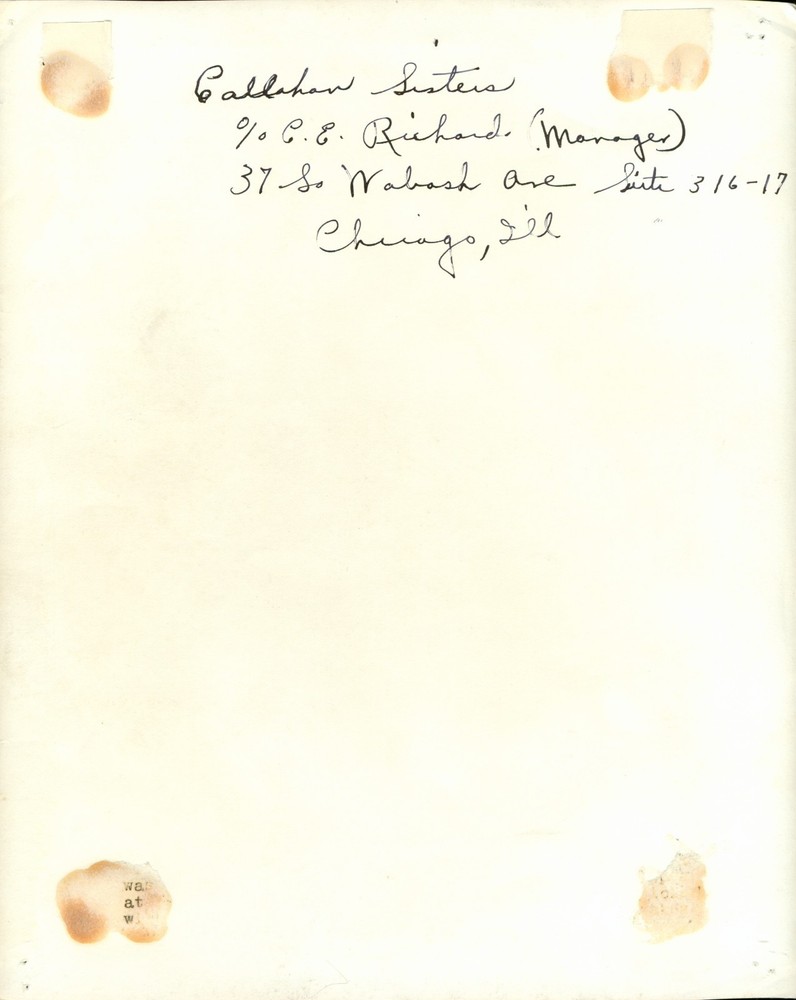 Callahan Sisters
c/o C. E. Richards (Manager)
37 So Wabash Ave Suite 316-17
Chicago, Ill
was
at
w